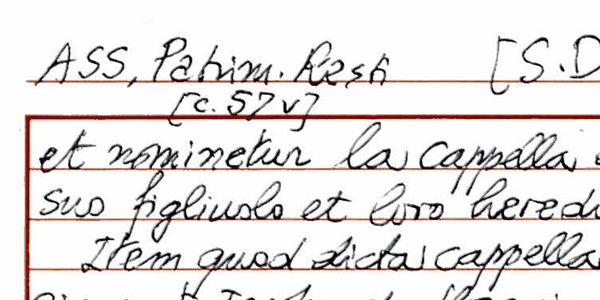 ASS, Patrim. Resti [S.D
[c. 57v]
et nominetur la cappella
suo figliuolo et loro heredi
Item quod dicta cappella